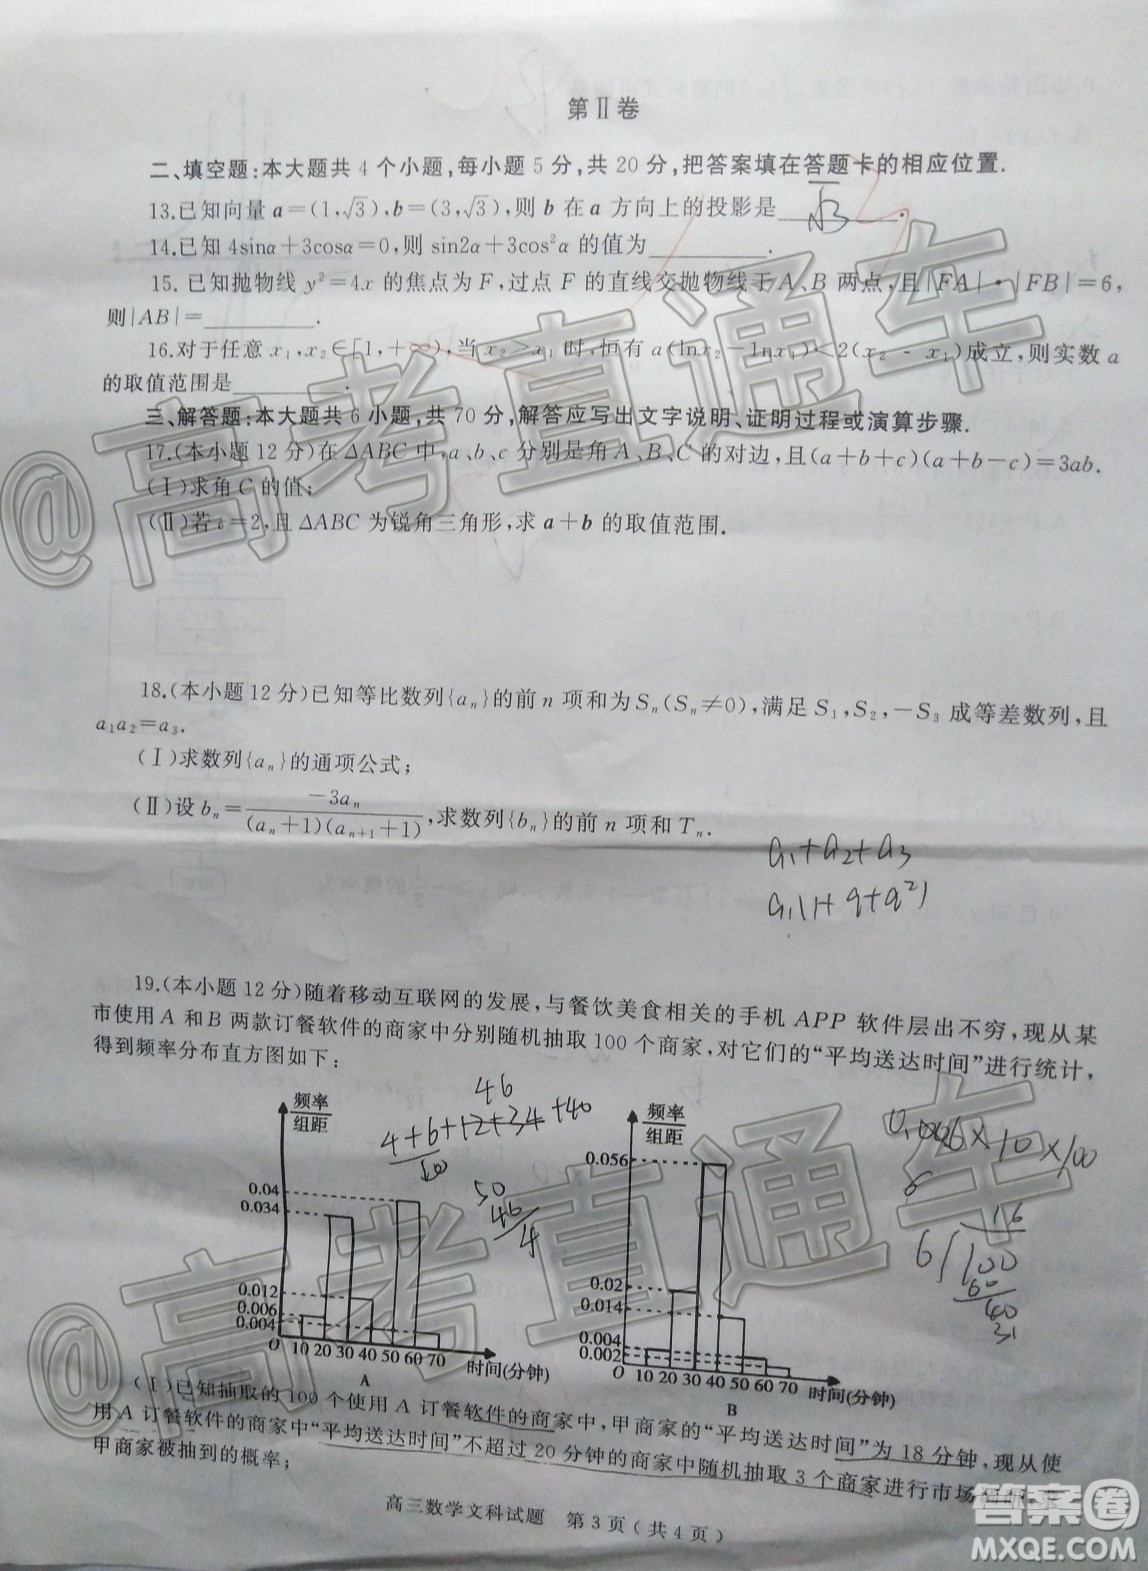 第Ⅱ卷
二、填空题:本大题共4个小题,每小题5分,共20分,把答案填在答题卡的相应位置.
13.已知向量a=(1,√3),b=(3,√3),则b在a方向上的投影是 √3 .
14.已知4sinα+3cosα=0,则sin2α+3cos²α的值为________.
15.已知抛物线y²=4x的焦点为F,过点F的直线交抛物线于A、B两点,且|FA|·|FB|=6,
则|AB|=________.
16.对于任意x₁,x₂∈[1,+∞),当x₂>x₁时,恒有a(lnx₂-lnx₁)<2(x₂-x₁)成立,则实数a
的取值范围是________.
三、解答题:本大题共6小题,共70分,解答应写出文字说明、证明过程或演算步骤.
17.(本小题12分)在△ABC中,a、b、c分别是角A、B、C的对边,且(a+b+c)(a+b-c)=3ab.
(Ⅰ)求角C的值;
(Ⅱ)若c=2,且△ABC为锐角三角形,求a+b的取值范围.
18.(本小题12分)已知等比数列{aₙ}的前n项和为Sₙ(Sₙ≠0),满足S₁,S₂,-S₃成等差数列,且
a₁a₂=a₃.
(Ⅰ)求数列{aₙ}的通项公式;
(Ⅱ)设bₙ=-3aₙ/(aₙ+1)(aₙ₊₁+1),求数列{bₙ}的前n项和Tₙ.
a₁+a₂+a₃
a₁(1+q+q²)
19.(本小题12分)随着移动互联网的发展,与餐饮美食相关的手机APP软件层出不穷,现从某
市使用A和B两款订餐软件的商家中分别随机抽取100个商家,对它们的“平均送达时间”进行统计,
得到频率分布直方图如下:
46
4+6+12+34+40
50
46
4
频率
组距
0.04
0.034
0.012
0.006
0.004
O 10 20 30 40 50 60 70 时间(分钟)
A
频率
组距
0.056
0.02
0.014
0.004
0.002
O 10 20 30 40 50 60 70 时间(分钟)
B
0.006×10×100
6
16
6 100
60
40
(Ⅰ)已知抽取的100个使用A订餐软件的商家中,甲商家的“平均送达时间”为18分钟,现从使
用A订餐软件的商家中“平均送达时间”不超过20分钟的商家中随机抽取3个商家进行市场
甲商家被抽到的概率;
高三数学文科试题 第3页(共4页)
@高考直通车
@高考直通车
答案圈
MXQE.COM